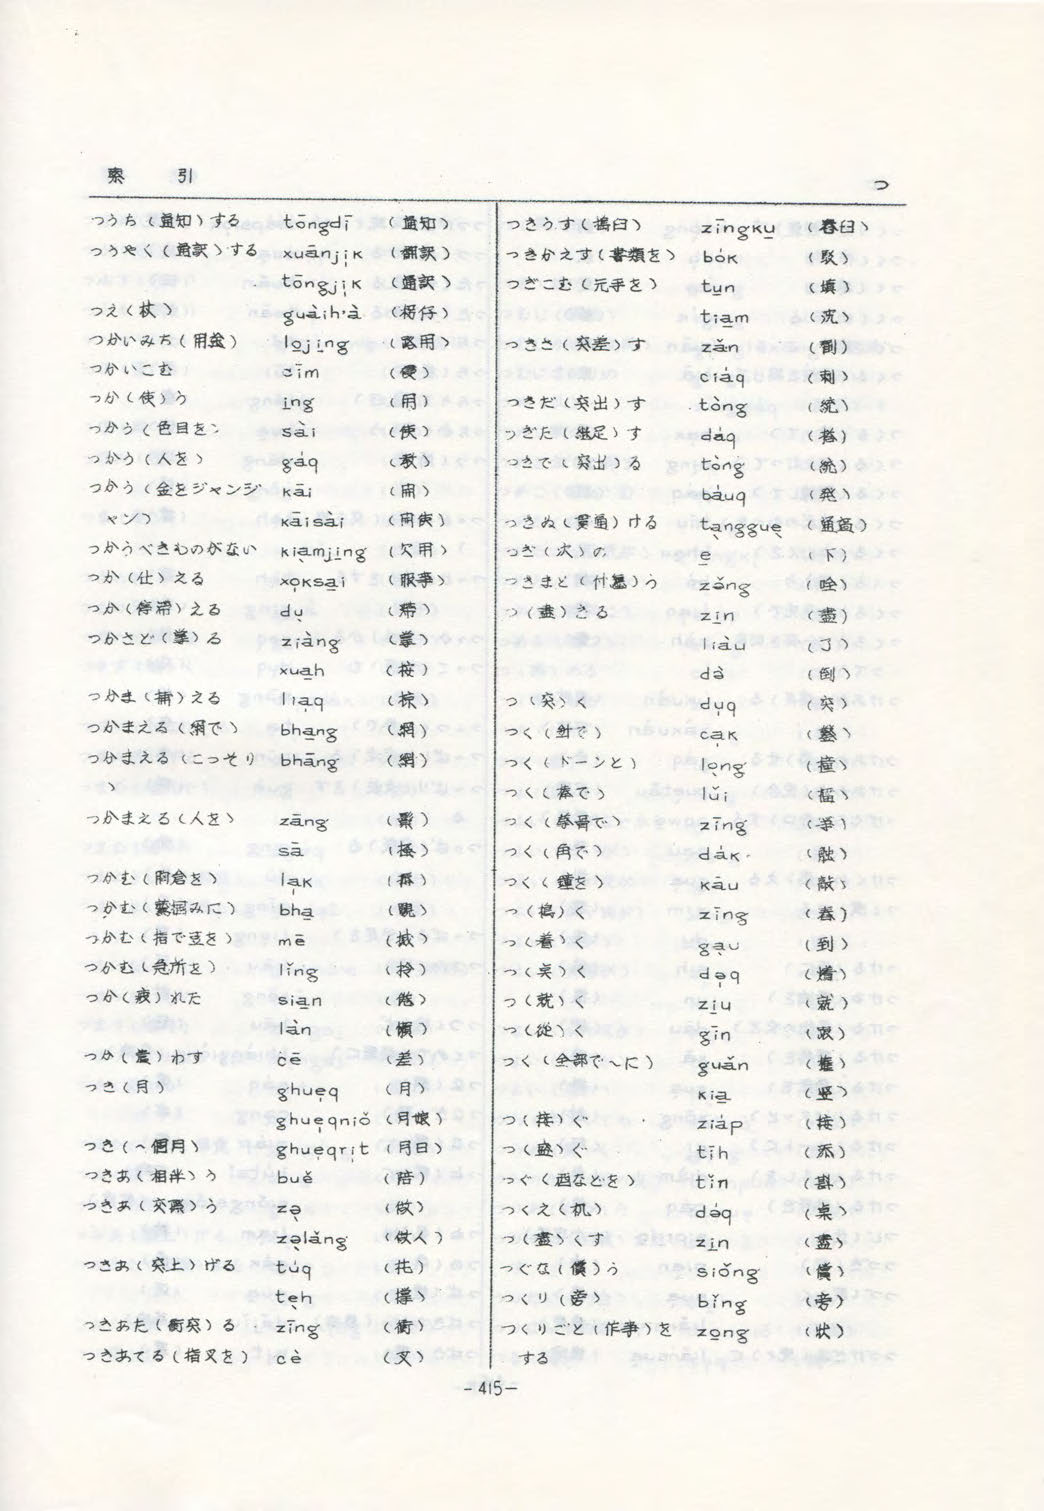 索 引
つ
つうち(通知)する tōngdī (通知)
つうやく(通訳)する xuānji̩k (翻訳)
tōngji̩k (通訳)
つえ(杖) guàih'à (枴仔)
つかいみち(用途) lo̲ji̲ng (路用)
つかいこむ cīm (侵)
つか(使)う i̲ng (用)
つかう(色目を) sài (使)
つかう(人を) gáq (教)
つかう(金をジャンジ kāi (開)
ャン) kāisài (開使)
つかうべきものがない kiamji̲ng (欠用)
つか(仕)える xo̩ksa̲i (服事)
つか(停滞)える du̩ (滞)
つかさど(掌)る ziàng (掌)
xua̲h (按)
つかま(捕)える lia̩q (掠)
つかまえる(網で) bha̲ng (網)
つかまえる(こっそり bhāng (網)
)
つかまえる(人を) zāng
sā
つかむ la̩k
つかむ bha̲
つかむ(指で豆を) mē
つかむ(急所を) lǐng (拎)
つか(疲)れた sia̲n
làn (懶)
つか(費)わす cē (差)
つき(月) ghue̩q (月)
ghue̩qniǒ (月娘)
つき(~個月) ghue̩qri̩t (月日)
つきあ(相伴)う buě (陪)
つきあ(交際)う zə̩ (做)
zə̩lǎng (做人)
つきあ(突上)げる túq (托)
te̩h (撑)
つきあた(衝突)る zīng (衝)
つきあてる(指叉を) cè (叉)
つきうす(搗臼) zīngku̲ (舂臼)
つきかえす(書類を) bók (駁)
つぎこむ(元手を) tu̲n (填)
tia̲m (沈)
つきさ(突差)す zǎn
ciáq (刺)
つきだ(突出)す tòng (統)
つぎた(継足)す dáq (搭)
つきで(突出)る tòng (統)
báuq (発)
つきぬ(貫通)ける ta̩nggue̩ (通過)
つぎ(次)の e̲ (下)
つきまと(付纏)う zǎng
つ(盡)きる zi̲n (盡)
liàu (了)
dà (倒)
つ(突)く du̩q (突)
つく(針で) ca̩k
つく(ドーンと) lo̩ng (撞)
つく(棒で) lǔi (擂)
つく zīng
つく(角で) dák (触)
つく(鐘を) kāu (敲)
つ(搗)く zīng (舂)
つ(着)く ga̩u (到)
つ(炙)く də̩q
つ(就)く zi̲u (就)
つ(従)く gīn (跟)
つく(全部で~に) guǎn
kia̲ (竪)
つ(接)ぐ ziáp (接)
つ(盛)ぐ tīh (添)
つぐ(酒などを) tǐn (斟)
つくえ(机) də́q (桌)
つ(盡)くす zi̲n (盡)
つぐな(償)う siǒng (償)
つくり(旁) bǐng (旁)
つくりごと(作事)を zo̲ng (状)
する
-415-